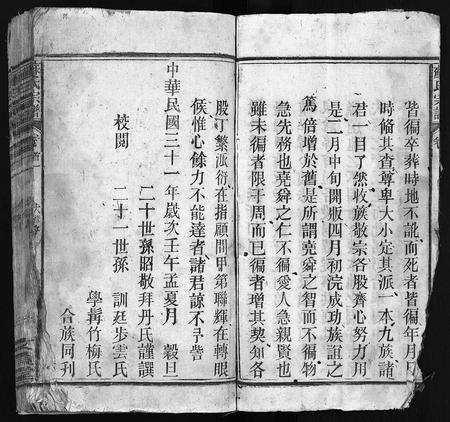 皆徧卒葬時地不謊而死者皆徧年月
時脩其查尊卑大小定其派一本九族諸
君一目了然收族敬宗各股齊心努力用
是二月中旬開版四月初浣成功族誼之
篤倍增於舊是所謂堯舜之智而不徧物
急先務也堯舜之仁不徧愛人急親賢也
雖未徧者限于周而已徧者增其契知各
股丁繁派衍在指顧間甲第聯輝在轉眼
候惟心餘力不能達者諸君諒不予訾
中華民國三十一年歲次壬午孟夏月 穀旦
二十世孫昭敬拜丹氏謹撰
校閱 二十一世孫 訓廷步雲氏
學髯竹梅氏
合族同刊
氏宗譜